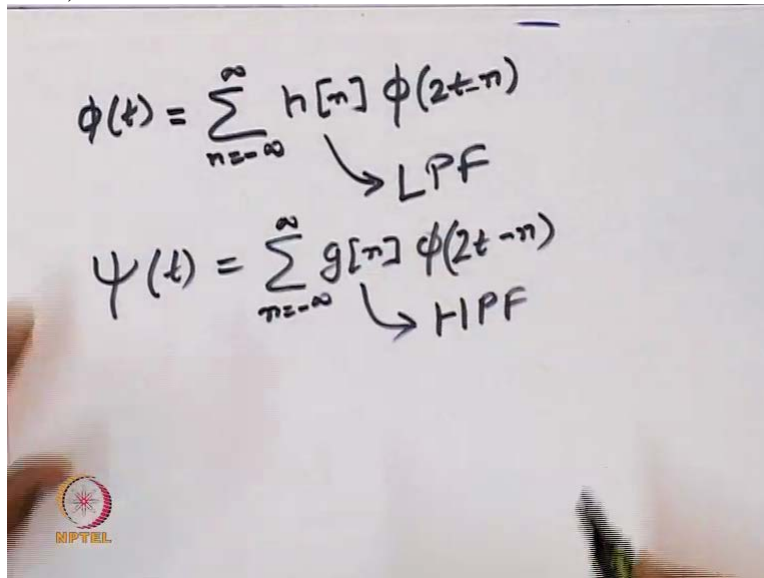 ϕ(t) = ∞ Σ n=-∞ h[n] ϕ(2t-n)
LPF
ψ(t) = ∞ Σ n=-∞ g[n] ϕ(2t-n)
HPF
NPTEL